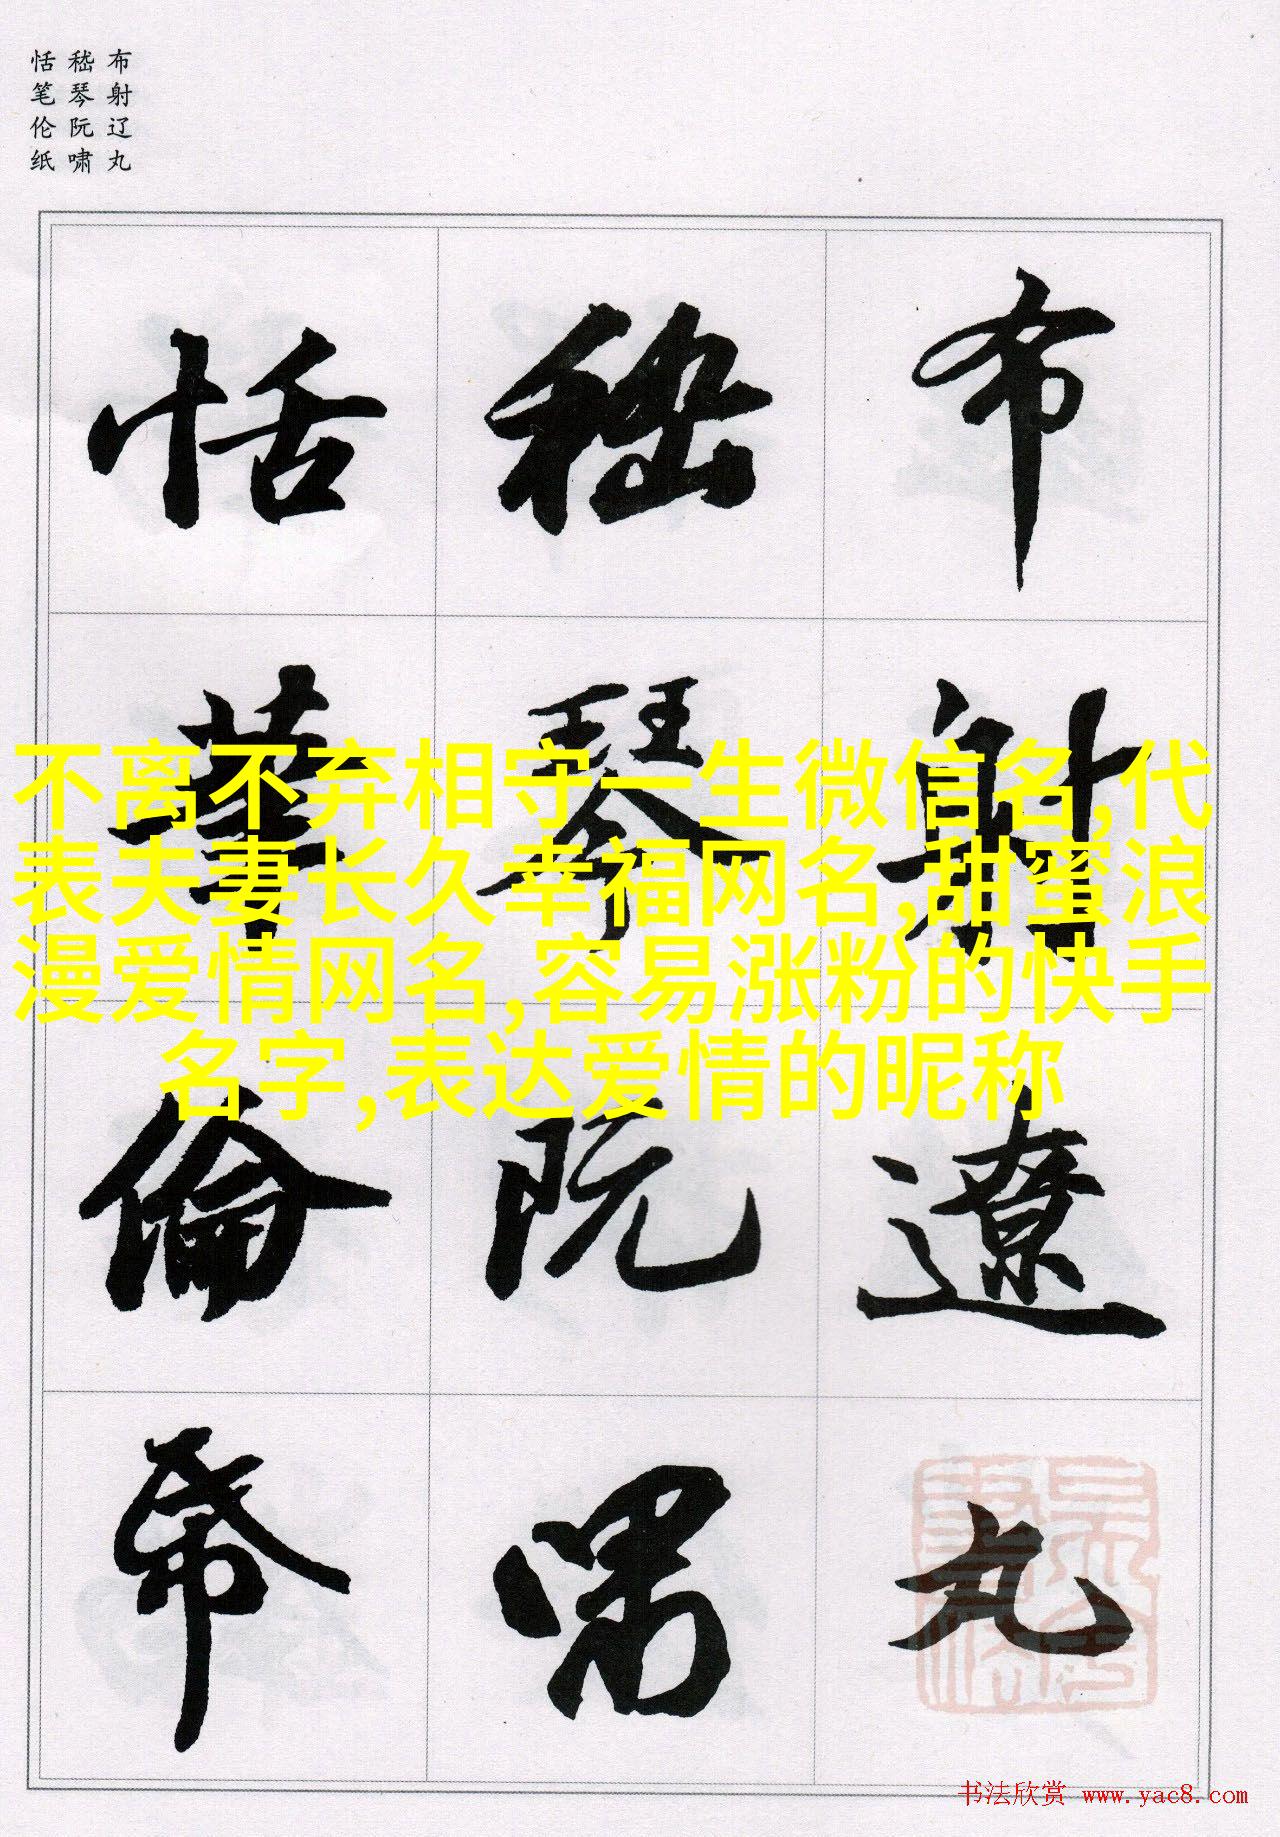 布射辽丸
嵇琴阮啸
恬笔伦纸
布射遼丸
嵇琴阮嘯
恬筆倫帋
不离不弃相守一生微信名,代
表夫妻长久幸福网名,甜蜜浪
漫爱情网名,容易涨粉的快手
名字,表达爱情的昵称
书法欣赏 www.yac8.com